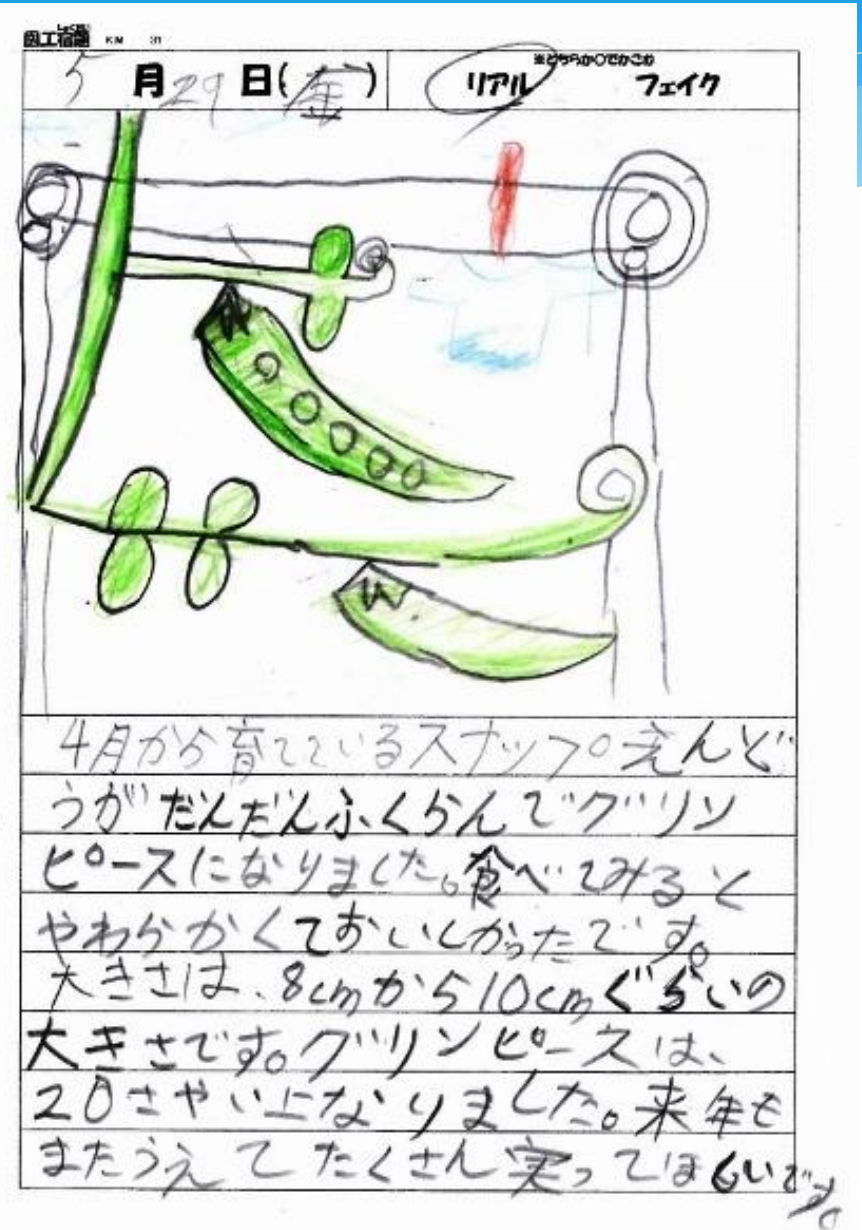 図工宿題
※どちらか○でかこむ
5月29日(金) リアル フェイク
4月から育てているスナップえんど
うがだんだんふくらんでグリン
ピースになりました。食べてみると
やわらかくておいしかったです。
大きさは、8cmから10cmぐらいの
大きさです。グリンピースは、
20さやい上なりました。来年も
またうえてたくさん実ってほしいです。